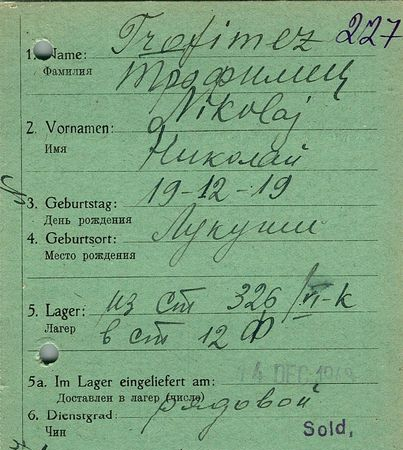 Trofimez 227
1. Name:
Фамилия Трофимец
Nikolaj
2. Vornamen:
Имя Николай
3. Geburtstag: 19-12-19
День рождения
4. Geburtsort: Лукуши
Место рождения
5. Lager: из ст 326/VI-к
Лагерь
в ст 12 Ф
5a. Im Lager eingeliefert am: DEC
Доставлен в лагер (число)
6. Dienstgrad: рядовой
Чин Sold.